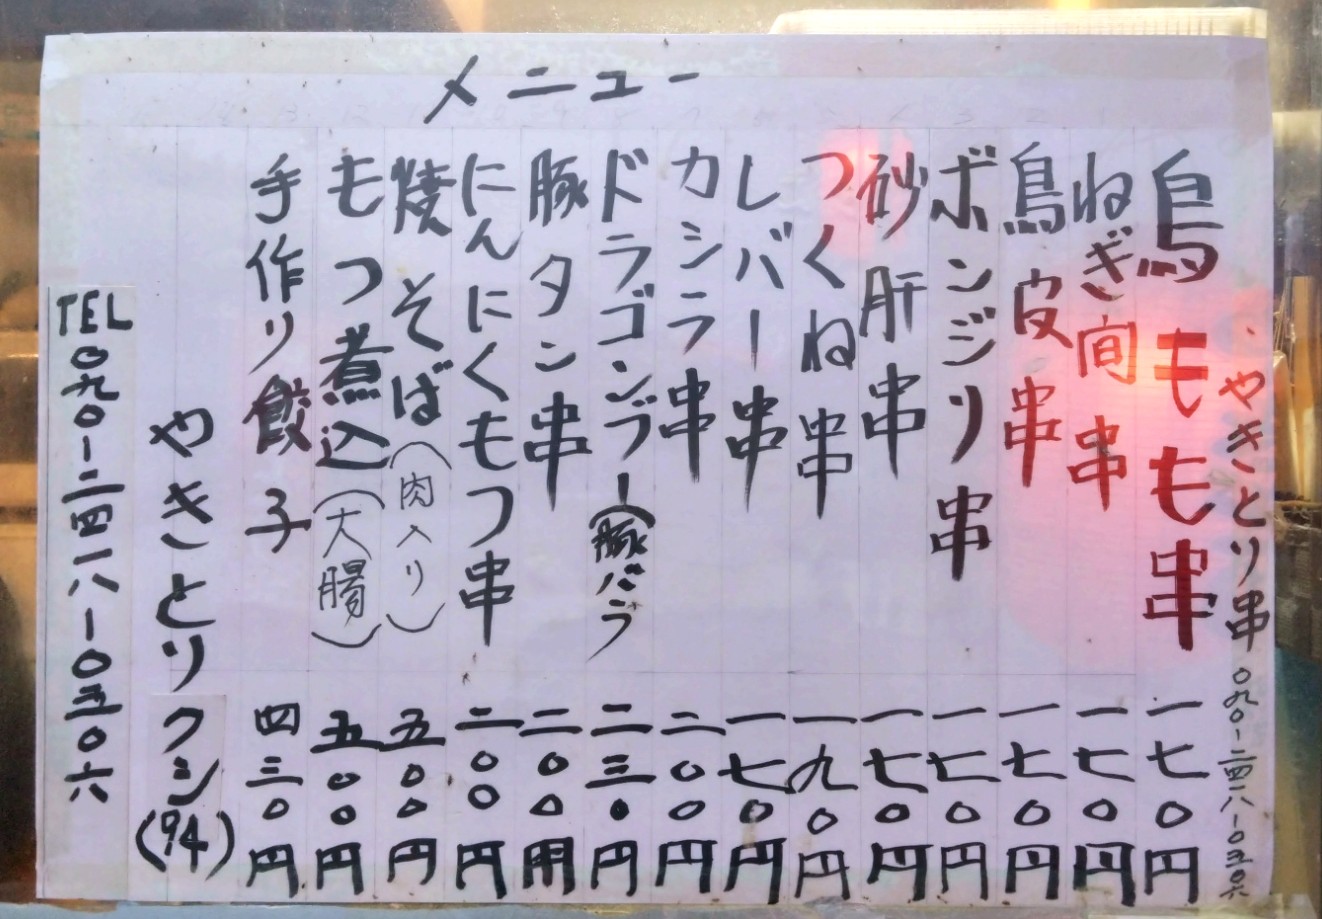 メニュー
やきとり串 〇九〇ー二四一八ー〇五〇六
鳥もも串 一七〇円
ねぎ間串 一七〇円
鳥皮串 一七〇円
ボンジリ串 一七〇円
砂肝串 一七〇円
つくね串 一九〇円
レバー串 一七〇円
カシラ串 二〇〇円
ドラゴンブー(豚バラ 二三〇円
豚タン串 二〇〇円
にんにくもつ串 二〇〇円
焼そば(肉入り) 五〇〇円
もつ煮込(大腸) 五〇〇円
手作り餃子 四三〇円
やきとりクシ(94)
TEL〇九〇ー二四一八ー〇五〇六